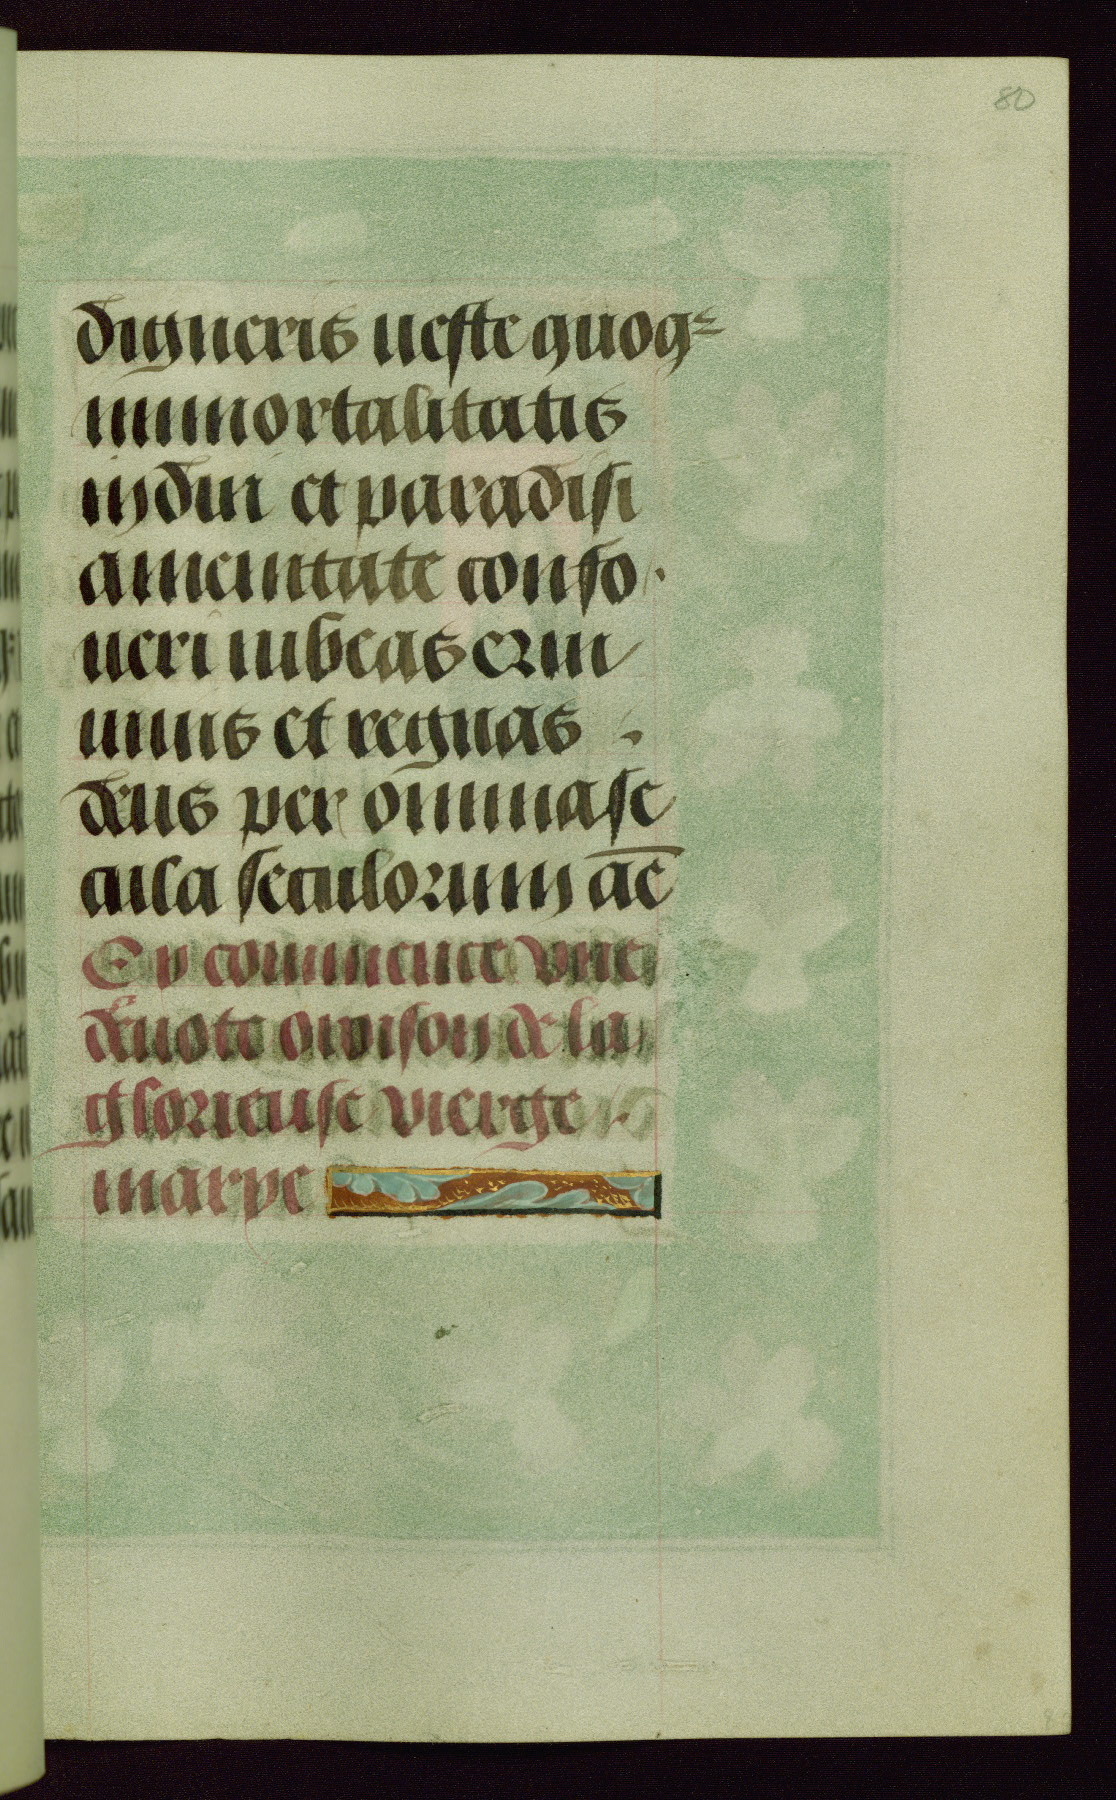 80
digneris ueste quoq=
immortalitatis
indui et paradisi
amenitate confo
ueri iubeas Qui
uiuis et regnas
deus per omnia se
cula seculorum am̄
Cy commence vne
deuote oroison de la
glorieuse vierge
marye